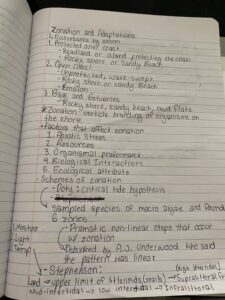 Zonation and Adaptations
* Disturbance by storm
1. Protected outer coast
- Headland or island protecting the coast
- Rocky shore or sandy Beach
2. Open Coast
- Unprotected, wave-swept
- Rocky shore or sandy Beach
- Erosion
3. Bays and Estuaries
- Rocky shore, sandy beach, mud flats
* Zonation: verticle banding of organisms on
the shore
- Factors that affect zonation
1. Abiotic Stress
2. Resources
3. Organismal preformance
4. Biological Interactions
5. Ecological attribute
- Schemes of zonation
- Doty: critical tide hypothesis
- Stephenson
Sampled species of macro algae and
6 zones
Dramatic non-linear steps that occur
w/ zonation
Debunked by A.J. Underwood who said
the pattern was linear
Moisture
Light
Temp
Stephenson:
Land → upper limit of littorinids (snails) →
Mid-intertidal → low intertidal → Infralittoral